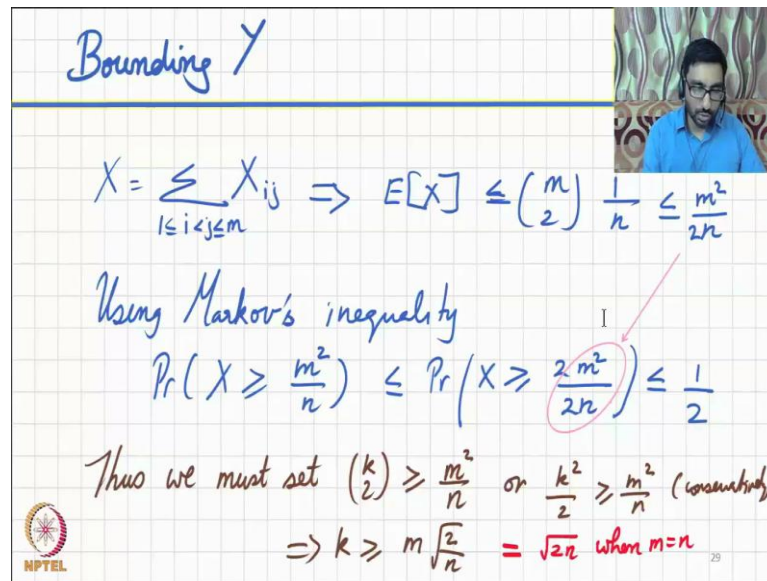 Bounding Y
X = Σ X_ij ⟹ E[X] ≤ (m 2) 1/n ≤ m²/2n
1≤i<j≤m
Using Markov's inequality
Pr(X ≥ m²/n) ≤ Pr(X ≥ 2m²/2n) ≤ 1/2
Thus we must set (k 2) ≥ m²/n or k²/2 ≥ m²/n (conservatively
⟹ k ≥ m√(2/n) = √2n when m=n
29
NPTEL